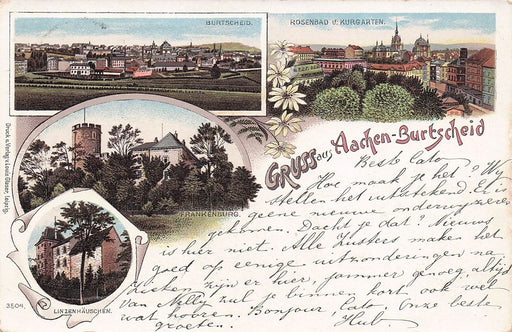 BURTSCHEID.
ROSENBAD U. KURGARTEN.
GRUSS aus Aachen-Burtscheid
FRANKENBURG.
LINZENHÄUSCHEN.
Druck u. Verlag v. Louis Glaser, Leipzig.
3504.
Beste Cato
Hoe maak je het? Wij
stellen het uitstekend. Er is
geene nieuwe onderwijzeres
gekomen. Dacht je dat? Nieuws
is hier niet. Alle Zusters maken het
goed op eenige uitzonderingen na
Zieken zijn er hier, jammer genoeg, altijd
Van Nelly zul je binnen kort ook wel
wat hooren. Bonjour, Cato, Onze beste
groeten. Hub.